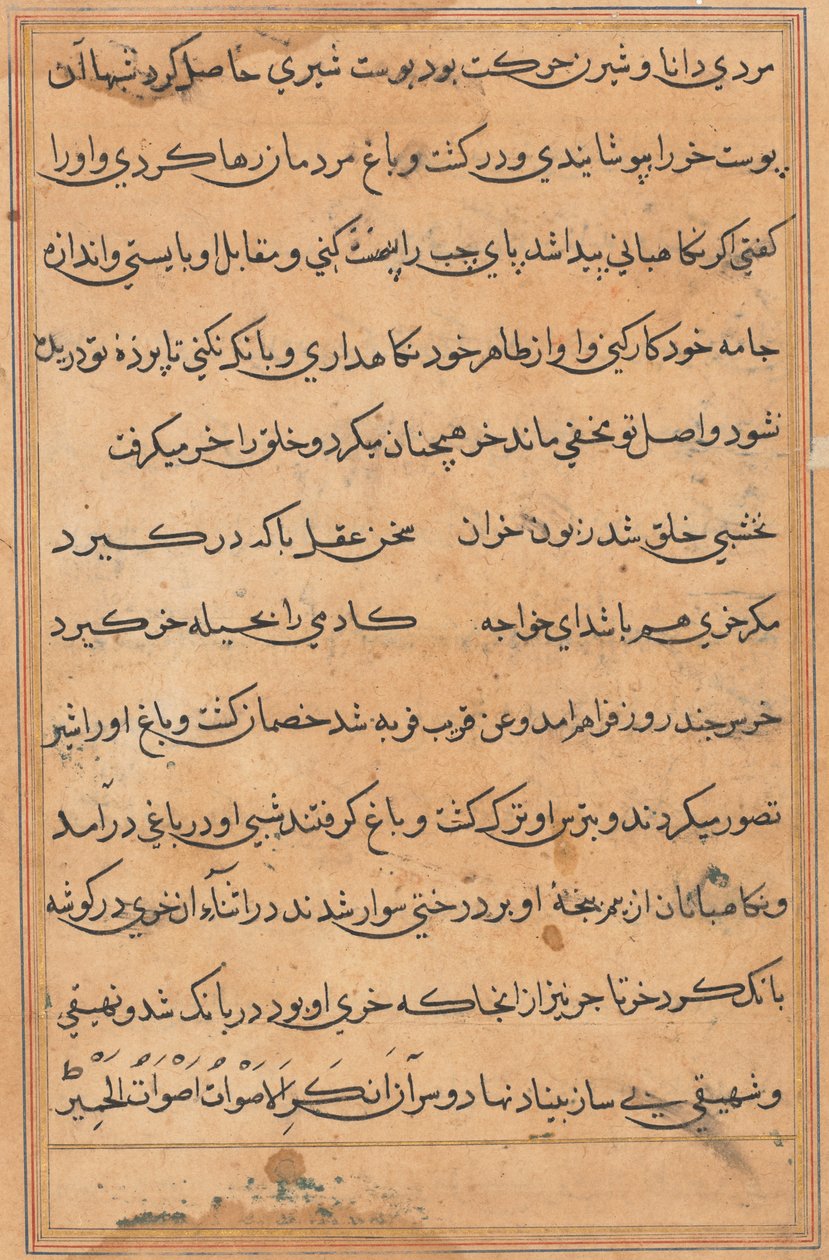 مردي دانا و شيرن حركت بود پوست شيري حاصل كرد شبها آن
پوست خر را پپوشايندي و در كشت و باغ مردمان رها كردي و اورا
كفتي اكر نكاهباني پيدا شد پاي چپ را پست كني و مقابل او بايستي و اندازه
جامه خود كار كني و از ظاهر خود نكاهداري و بانك نكني تا پرده تو دريده
نشود و اصل تو مخفي ماند خر هيچنان ميكرد و خلق را خر ميكرفت
نخشبي خلق شد زبون خران سخن عقل باكه در كيرد
مكر خري هم باشد اي خواجه كادمي را بحيله خر كيرد
خر سر چند روز فراهم امد و عن قريب فربه شد خصمان كشت و باغ او را شير
تصور ميكردند و بترس او ترك كشت و باغ كرفتند شبي او در باغي در آمد
و نكاهبانان از بيم پنجهٔ او بر درختي سوار شدند در اثنآء ان خري در كوشه
بانك كرد خر تاجر نيز از انجا كه خري او بود در بانك شد و نهيقي
و شهيقي بي ساز بنياد نهاد و سر آن اَنكَرِ الاَصَوْاتُ اَصَوَاَتُ الحَمِيْرْ ط